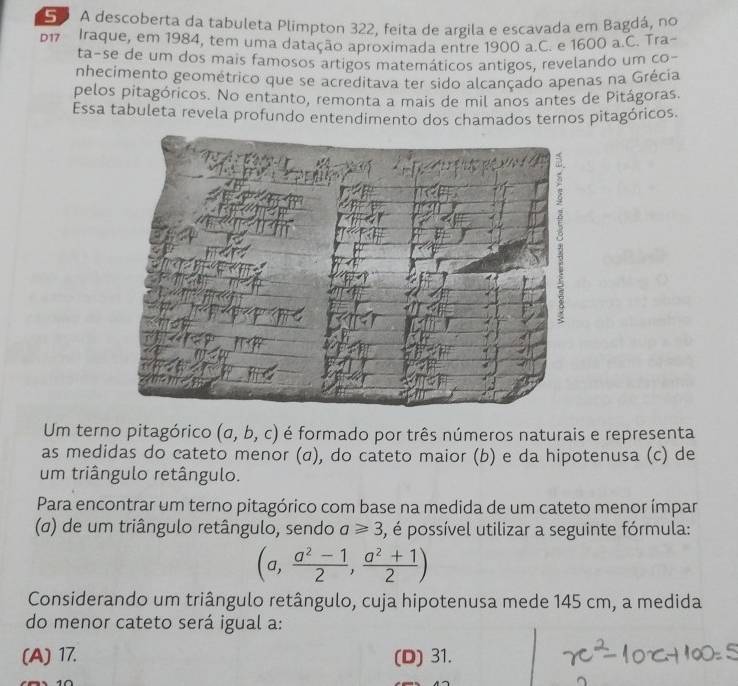 5 A descoberta da tabuleta Plimpton 322, feita de argila e escavada em Bagdá, no
D17 Iraque, em 1984, tem uma datação aproximada entre 1900 a.C. e 1600 a.C. Tra-
ta-se de um dos mais famosos artigos matemáticos antigos, revelando um co-
nhecimento geométrico que se acreditava ter sido alcançado apenas na Grécia
pelos pitagóricos. No entanto, remonta a mais de mil anos antes de Pitágoras.
Essa tabuleta revela profundo entendimento dos chamados ternos pitagóricos.
Wikipedia/Universidade Columbia, Nova York, EUA
Um terno pitagórico (a, b, c) é formado por três números naturais e representa
as medidas do cateto menor (a), do cateto maior (b) e da hipotenusa (c) de
um triângulo retângulo.
Para encontrar um terno pitagórico com base na medida de um cateto menor ímpar
(a) de um triângulo retângulo, sendo a ⩾ 3, é possível utilizar a seguinte fórmula:
(a, (a² − 1)/2, (a² + 1)/2)
Considerando um triângulo retângulo, cuja hipotenusa mede 145 cm, a medida
do menor cateto será igual a:
(A) 17. (D) 31.
x² − 10x + 100 = 5